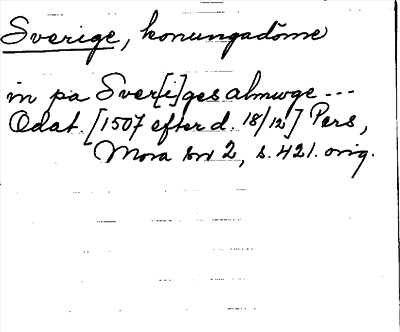 Sverige, konungadöme
in pa Sver[i]ges almwge ---
Odat. [1507 efter d. 18/12] Pers,
Mora br 2, s. 421. orig.